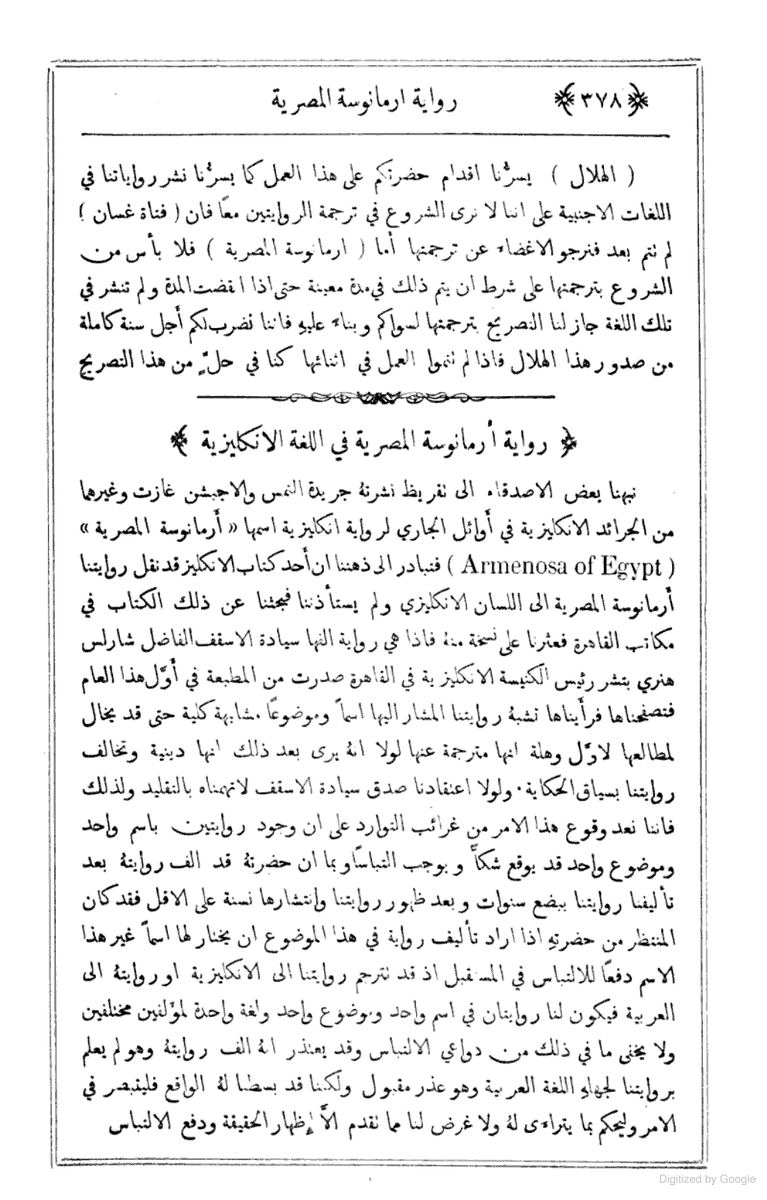 ﴿ ٣٧٨ ﴾ رواية ارمانوسة المصرية
( الهلال ) يسرُّنا اقدام حضرتكم على هذا العمل كما يسرُّنا نشر رواياتنا في
اللغات الاجنبية على اننا لا نرى الشروع في ترجمة الروايتين معًا فان ( فتاة غسان )
لم تتم بعد فنرجو الاغضاء عن ترجمتها أما ( ارمانوسة المصرية ) فلا بأس من
الشروع بترجمتها على شرط ان يتم ذلك في مدة معينة حتى اذا انقضت المدة ولم تنشر في
تلك اللغة جاز لنا التصريح بترجمتها لسواكم وبناءً عليهِ فاننا نضرب لكم أجل سنة كاملة
من صدور هذا الهلال فاذا لم تتموا العمل في اثنائها كنا في حلٍّ من هذا التصريح
﴿ رواية أرمانوسة المصرية في اللغة الانكليزية ﴾
نبهنا بعض الاصدقاء الى تقريظ نشرتهُ جريدة التمس والاجبشن غازت وغيرهما
من الجرائد الانكليزية في أوائل الجاري لرواية انكليزية اسمها « أرمانوسة المصرية »
( Armenosa of Egypt ) فتبادر الى ذهننا ان أحد كتاب الانكليز قد نقل روايتنا
أرمانوسة المصرية الى اللسان الانكليزي ولم يستأذننا فبحثنا عن ذلك الكتاب في
مكاتب القاهرة فعثرنا على نسخة منهُ فاذا هي رواية الفها سيادة الاسقف الفاضل شارلس
هنري بتشر رئيس الكنيسة الانكليزية في القاهرة صدرت من المطبعة في أوَّل هذا العام
فتصفحناها فرأيناها تشبهُ روايتنا المشار اليها اسمًا وموضوعًا مشابهة كلية حتى قد يخال
لمطالعها لاوَّل وهلة انها مترجمة عنها لولا انهُ يرى بعد ذلك انها دينية وتخالف
روايتنا بسياق الحكاية. ولولا اعتقادنا صدق سيادة الاسقف لاتهمناه بالتقليد ولذلك
فاننا نعد وقوع هذا الامر من غرائب التوارد على ان وجود روايتين باسم واحد
وموضوع واحد قد يوقع شكًّا ويوجب التباسًا وبما ان حضرتهُ قد الف روايتهُ بعد
تأليفنا روايتنا ببضع سنوات وبعد ظهور روايتنا وانتشارها نسنة على الاقل فقد كان
المنتظر من حضرتهِ اذا اراد تأليف رواية في هذا الموضوع ان يختار لها اسمًا غير هذا
الاسم دفعًا للالتباس في المستقبل اذ قد تترجم روايتنا الى الانكليزية او روايتهُ الى
العربية فيكون لنا روايتان في اسم واحد وموضوع واحد ولغة واحدة لمؤلفين مختلفين
ولا يخفى ما في ذلك من دواعي الالتباس وقد يعتذر انهُ الف روايتهُ وهو لم يعلم
بروايتنا لجهلهِ اللغة العربية وهو عذر مقبول ولكننا قد بسطنا لهُ الواقع فليتبصر في
الامر وليحكم بما يتراءى لهُ ولا غرض لنا مما تقدم الَّا إظهار الحقيقة ودفع الالتباس
Digitized by Google